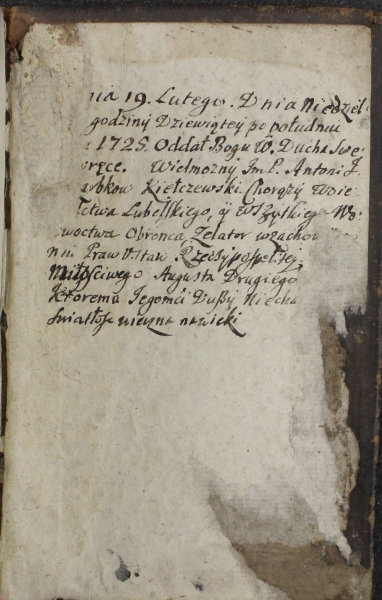 nia 19. Lutego. Dnia Niedziel
godziny Dziewiątey po południu
1725. Oddał Bogu W. Ducha Swe
ręce. Wielmozny Im P. Antoni J
Kiełczewski Chorąży Woie
ctwa Lubelskiego, y Wszytkiego Wo
woctwa Obronca, Zelator wzachow
niu Praw Ustaw Rzeczypospolitej
Miłosciwego Augusta Drugiego
Ktoremu Jegomci Duszy Niecha
Swiatłosc wieczna nawieki